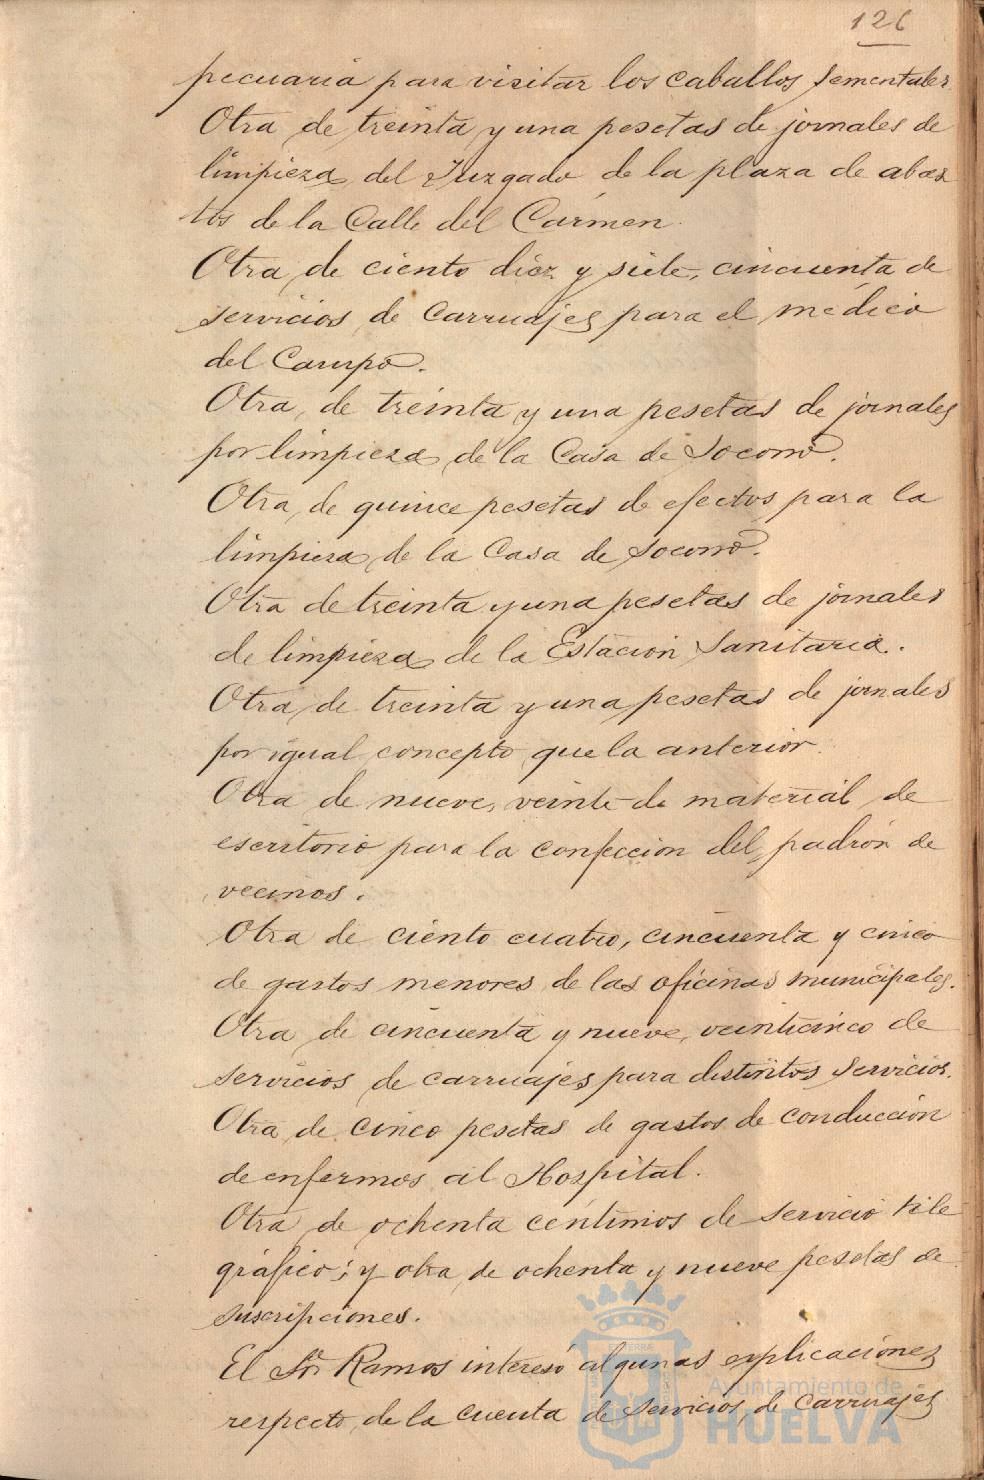 126
pecuaria para visitar los caballos sementales
Otra de treinta y una pesetas de jornales de
limpieza del Juzgado de la plaza de abas
tos de la Calle del Cármen.
Otra de ciento diez y siete, cincuenta de
servicios de carruajes para el médico
del Campo.
Otra de treinta y una pesetas de jornales
por limpieza de la Casa de Socorro.
Otra de quince pesetas de efectos para la
limpieza de la Casa de Socorro.
Otra de treinta y una pesetas de jornales
de limpieza de la Estación Sanitaria.
Otra de treinta y una pesetas de jornales
por igual concepto que la anterior.
Otra de nueve, veinte de material de
escritorio para la confección del padrón de
vecinos.
Otra de ciento cuatro, cincuenta y cinco
de gastos menores de las oficinas municipales.
Otra de cincuenta y nueve, veinticinco de
servicios de carruajes para distintos servicios.
Otra de cinco pesetas de gastos de conducción
de enfermos al Hospital.
Otra de ochenta céntimos de servicio tele
gráfico; y otra de ochenta y nueve pesetas de
suscripciones.
El Sr. Ramos interesó algunas explicaciones
respecto de la cuenta de servicios de carruajes
Ayuntamiento de
HUELVA